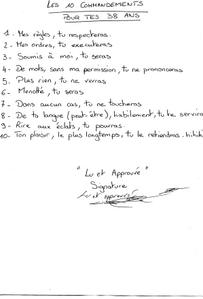 LES 10 COMMANDEMENTS
POUR TES 38 ANS
1- Mes règles, tu respecteras
2- Mes ordres, tu executeras
3- Soumis à moi, tu seras
4- De mots, sans ma permission, tu ne prononceras
5- Plus rien, tu ne verras
6- Menotté, tu seras
7- Dans aucun cas, tu ne toucheras
8- De ta langue (peut-être), habilement, tu te serviras
9- Rire aux éclats, tu pourras
10- Ton plaisir, le plus longtemps, tu le retiendras. hihihi
"Lu et Approuvé"
Signature
Lu et approuvé